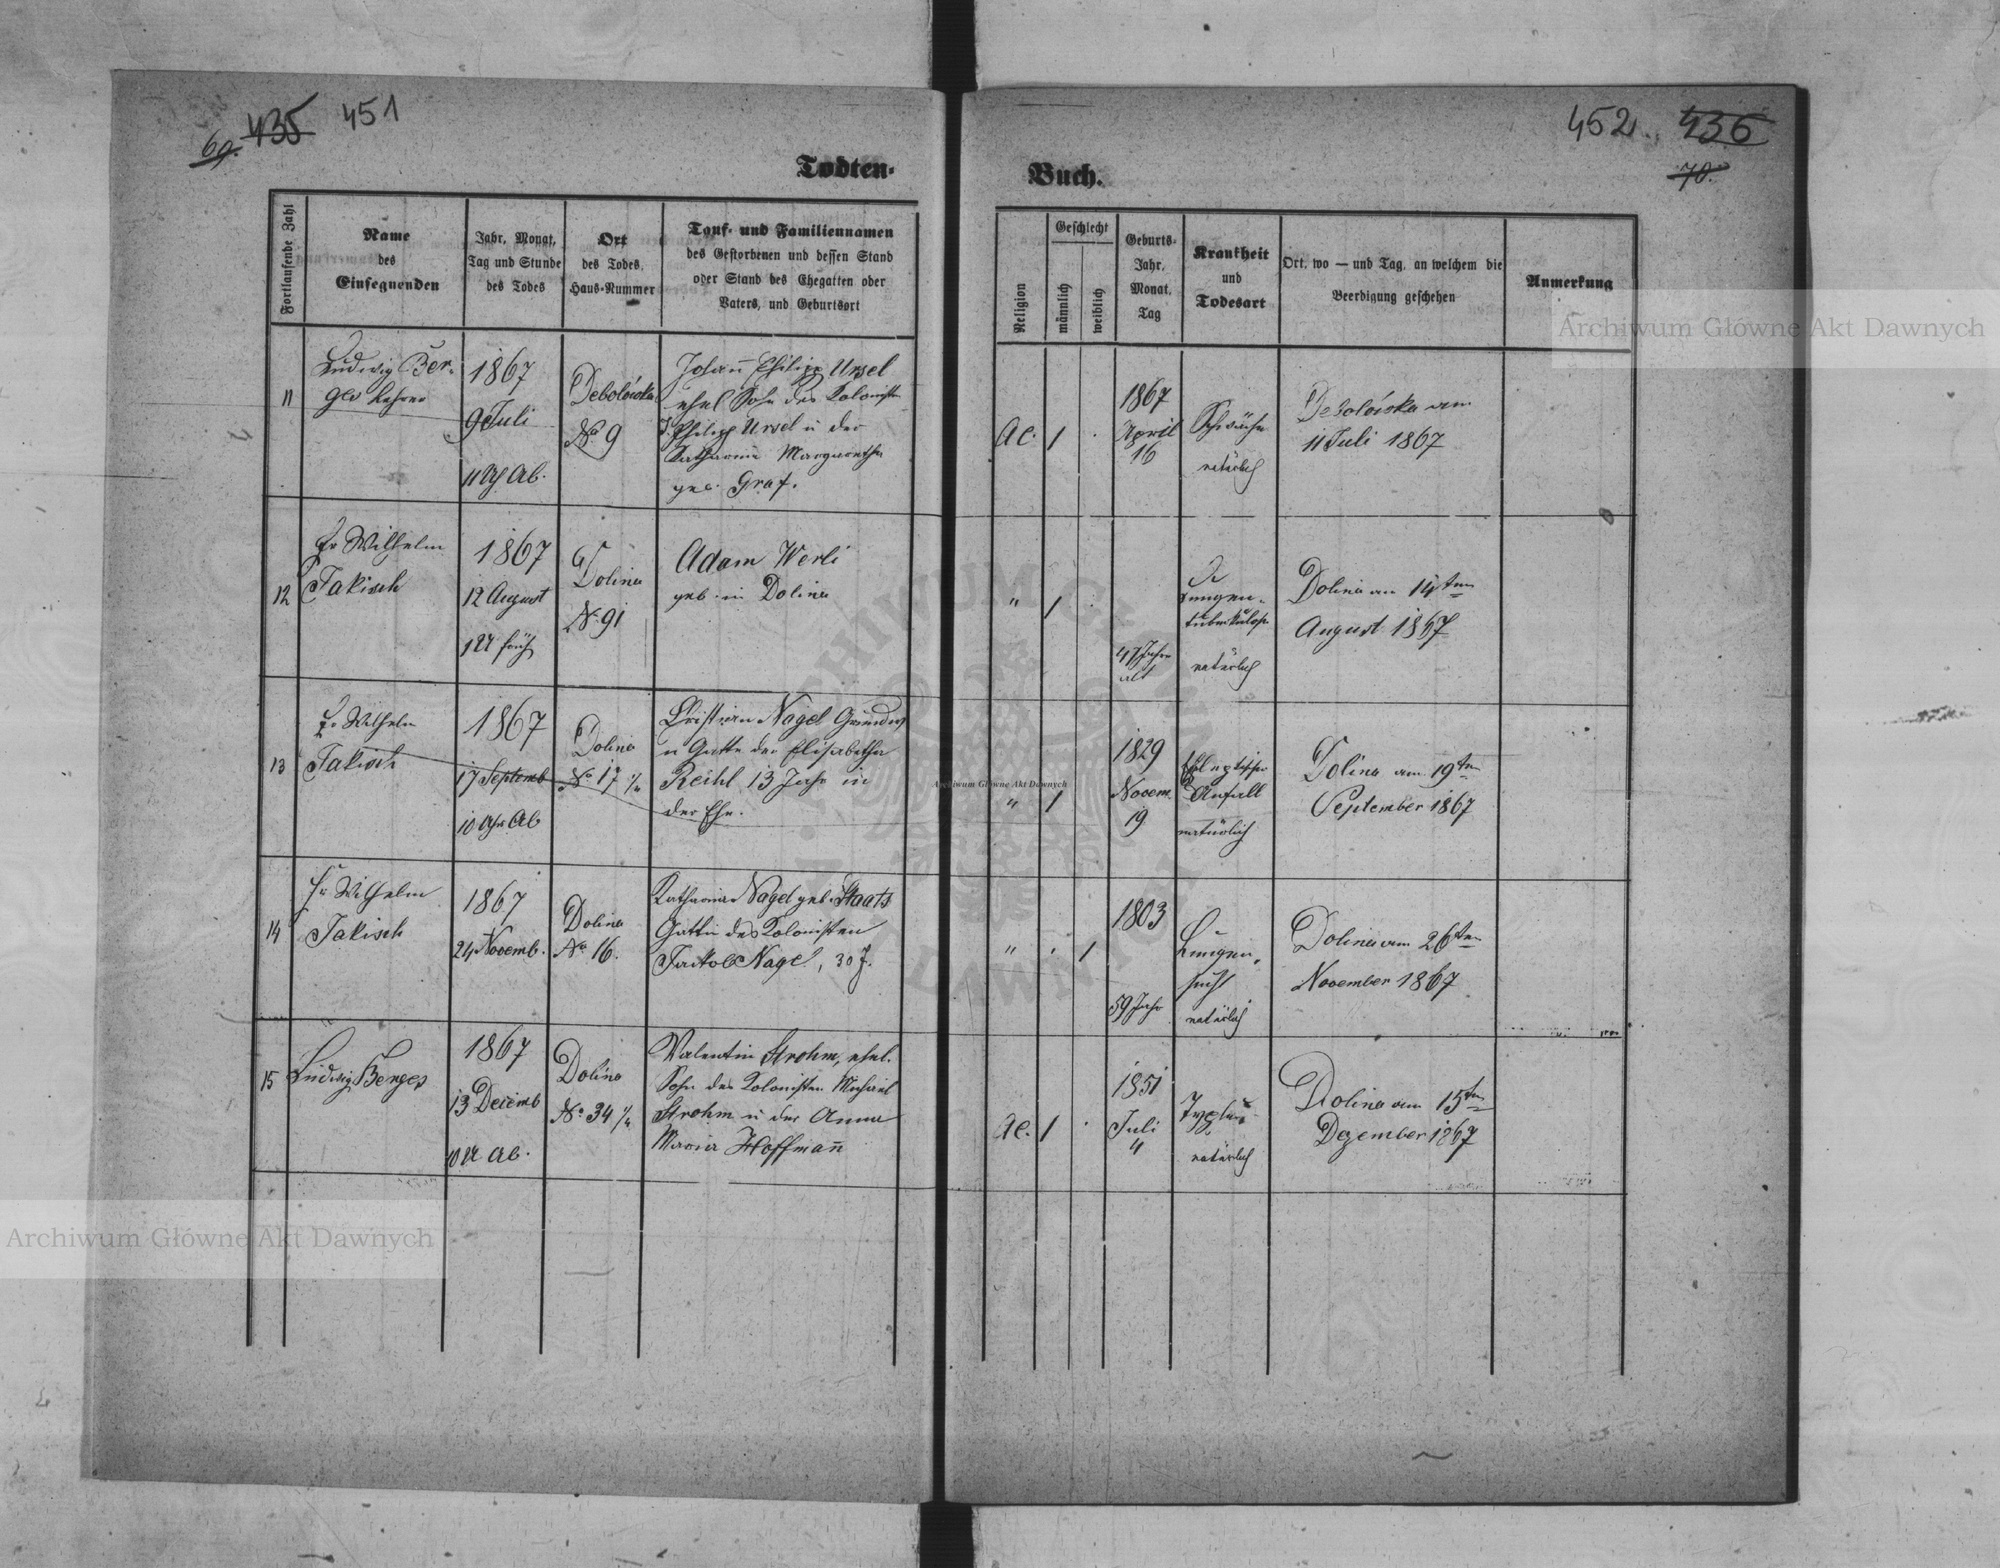 435 451
69.
452. 436
70.
Todten-
Buch.
Fortlaufende Zahl
Name
des
Einsegnenden
Jahr, Monat,
Tag und Stunde
des Todes
Ort
des Todes,
Haus-Nummer
Tauf- und Familiennamen
des Gestorbenen und dessen Stand
oder Stand des Ehegatten oder
Vaters, und Geburtsort
Religion
Geschlecht
männlich
weiblich
Geburts-
Jahr,
Monat,
Tag
Krankheit
und
Todesart
Ort, wo — und Tag, an welchem die
Beerdigung geschehen
Anmerkung
11
Ludwig Ber-
ges Lehrer
1867
9 Juli
11 Uh Ab.
Debolówka
No 9
Johann Philipp Ursel
ehel Sohn des Kolonisten
J. Philipp Ursel u der
Katharina Margaretha
geb. Graf.
AC.
1
1867
April
16
Schwäche
natürlich
Debolówka am
11 Juli 1867
12
Fr Wilhelm
Jakisch
1867
12 August
1 U früh
Dolina
No 91
Adam Werli
geb. in Dolina
"
1
47 Jahre
alt
Lungen-
tuberkulose
natürlich
Dolina am 14ten
August 1867
13
Fr Wilhelm
Jakisch
1867
17 Septemb
10 Uhr Ab
Dolina
No 17
Christian Nagel
u Gatte der Elisabetha
Reihl 13 Jahr in
der Ehe.
"
1
1829
Novem.
19
Anfall
natürlich
Dolina am 19ten
September 1867
14
Fr Wilhelm
Jakisch
1867
24 Novemb.
Dolina
No 16.
Katharina Nagel geb. Staats
Gattin des Kolonisten
Jakob Nagel, 30 J.
"
1
1803
59 Jahr
Lungen-
sucht
natürlich
Dolina am 26ten
November 1867
15
Ludwig Berges
1867
13 Decemb
10 U Ab.
Dolina
No 34
Valentin Strohm, ehel.
Sohn des Kolonisten Michael
Strohm u der Anna
Maria Hoffmann
AC.
1
1851
Juli
4
Typhus
natürlich
Dolina am 15ten
Dezember 1867
Archiwum Główne Akt Dawnych
Archiwum Główne Akt Dawnych
Archiwum Główne Akt Dawnych